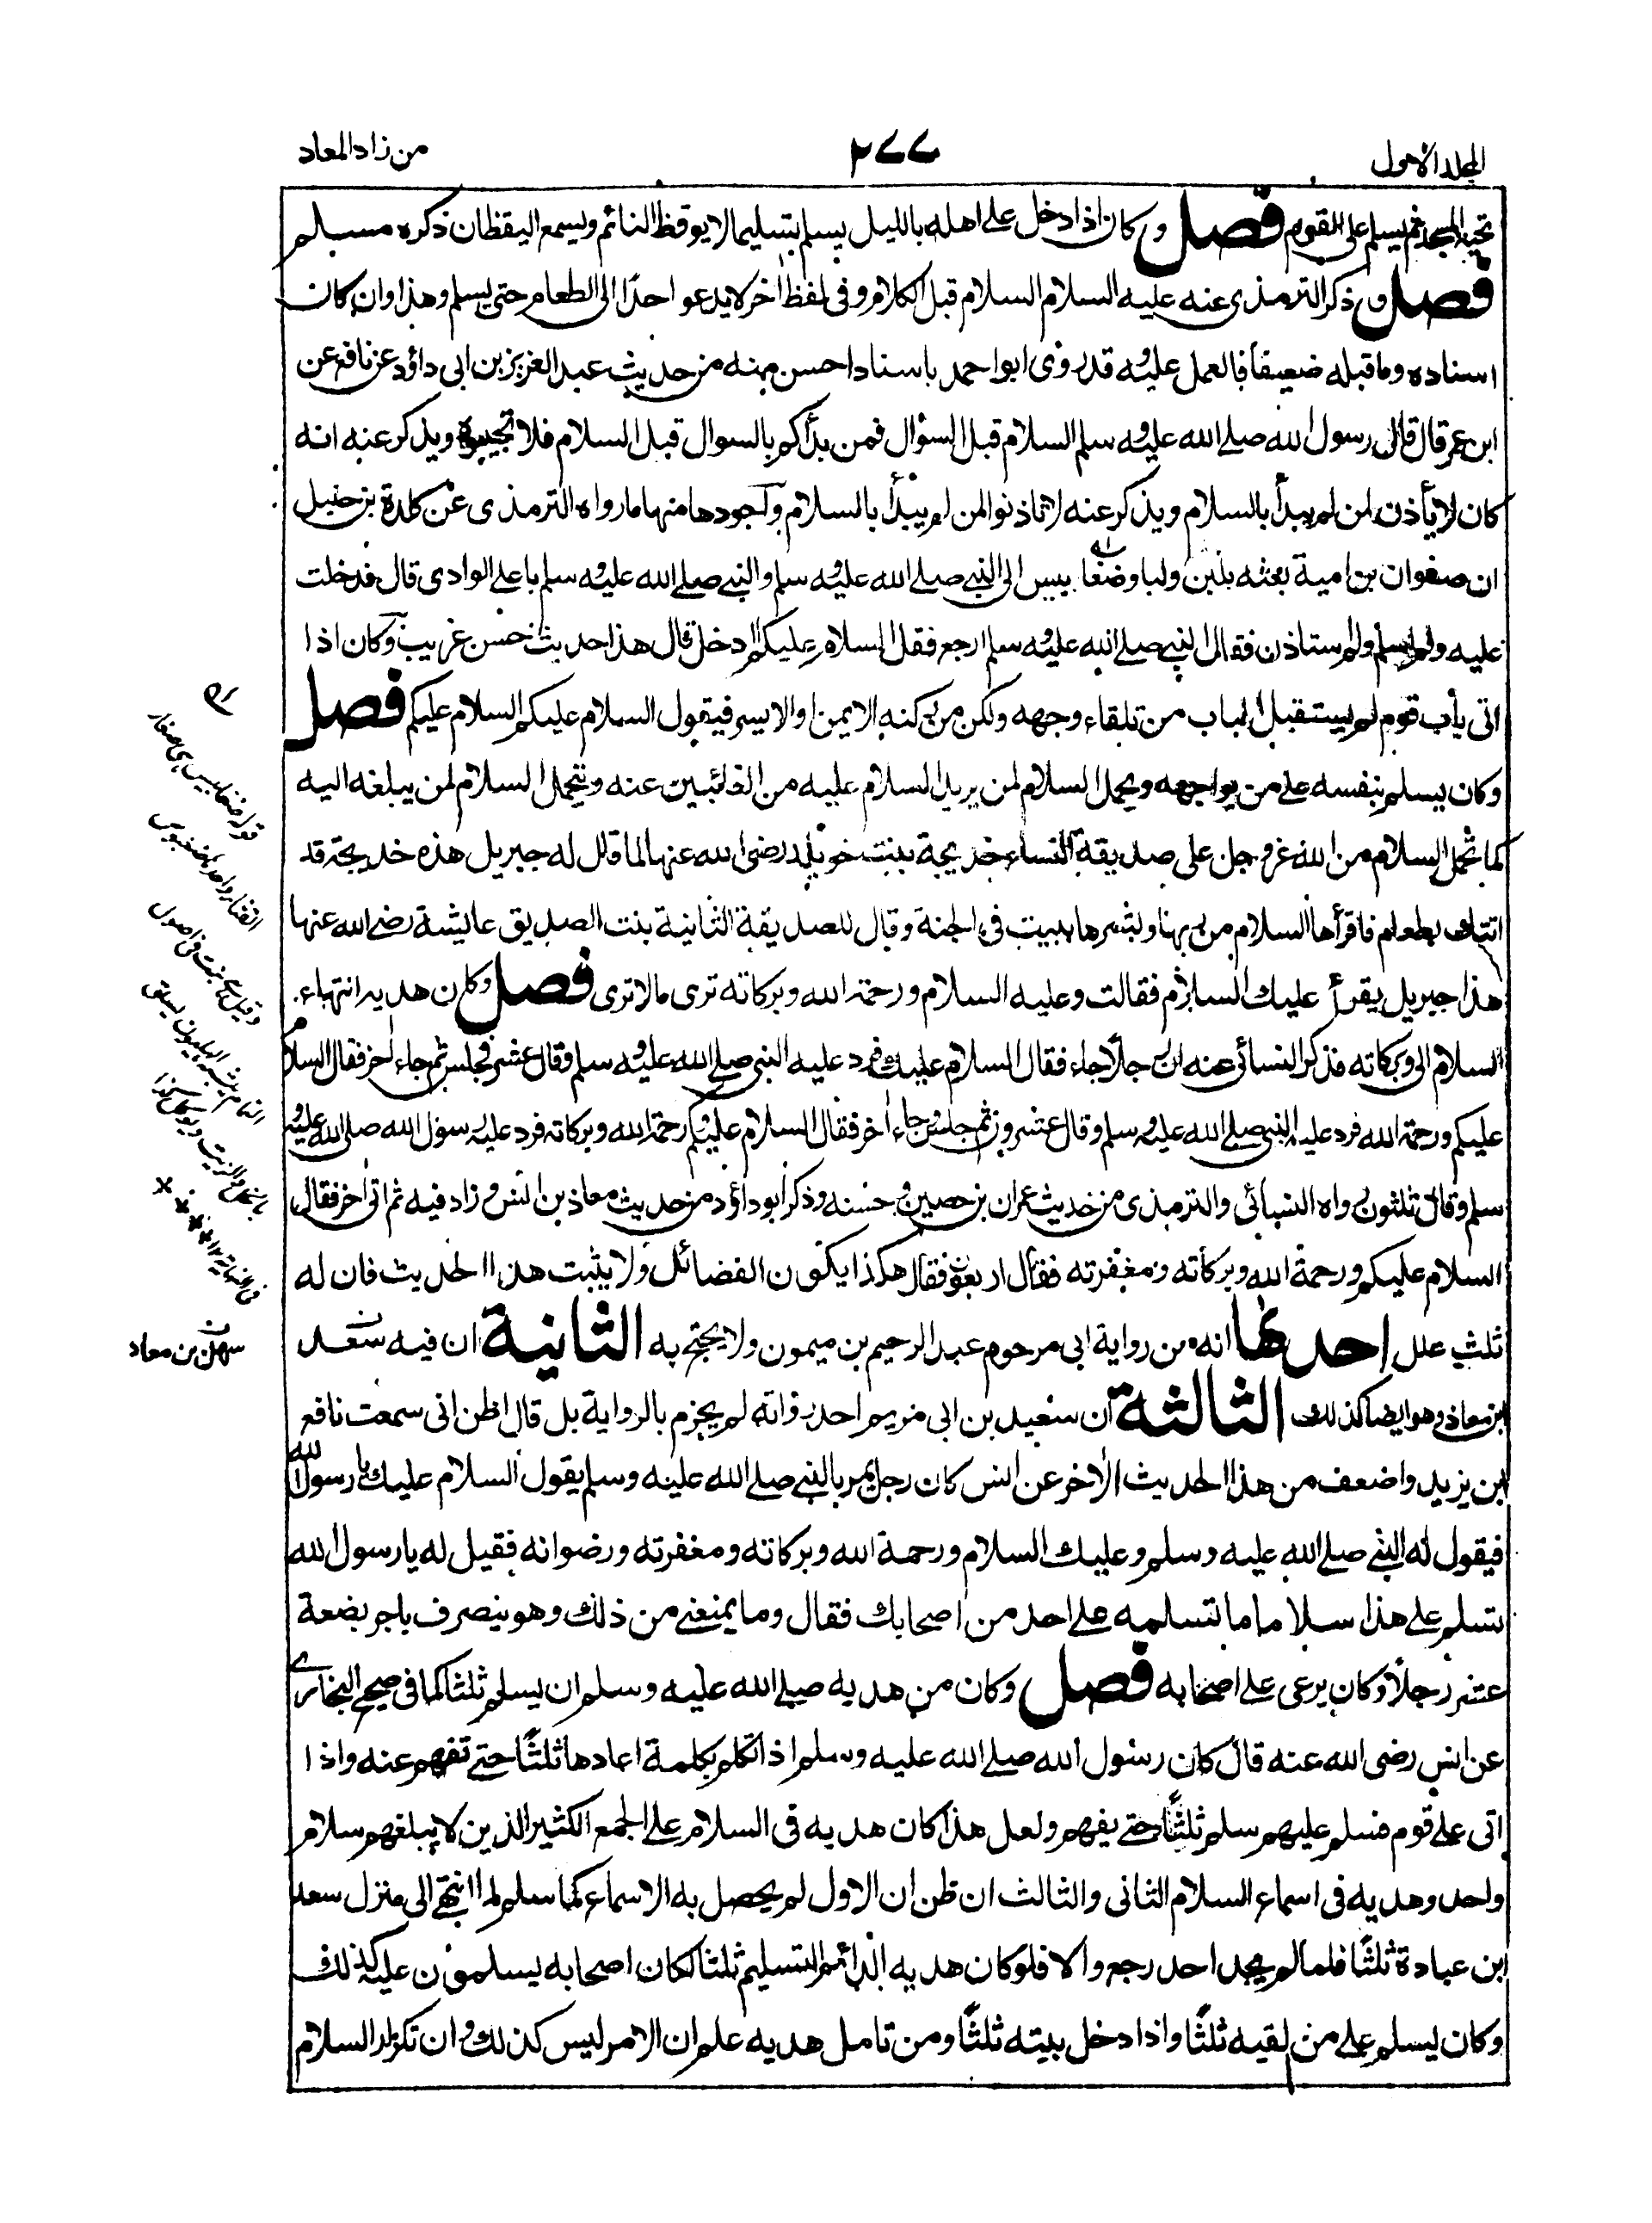 المجلد الاول
٢٧٧
من زاد المعاد
تحية المسجد ثم يسلم على القوم فصل وكان اذا دخل على اهله بالليل يسلم تسليما لا يوقظ النائم ويسمع اليقظان ذكره مسلم
فصل وذكر الترمذى عنه عليه السلام السلام قبل الكلام وفى لفظ اخر لا يدعو احدًا الى الطعام حتى يسلم وهذا وان كان
اسناده وما قبله ضعيفا فالعمل عليه قد روى ابو احمد باسناد احسن منه من حديث عبد العزيز بن ابى داؤد عن نافع عن
ابن عمر قال قال رسول الله صلے الله عليه سلم السلام قبل السؤال فمن بدأكم بالسوال قبل السلام فلا تجيبوه ويذكر عنه انه
كان لا يأذن لمن لم يبدأ بالسلام ويذكر عنه لا تاذنوا لمن لم يبدأ بالسلام وآجود ها منها ما رواه الترمذى عن كلدة بن حنبل
ان صفوان بن امية بعثه بلبن ولبا وضغابيس الى النبے صلے الله عليه سلم والنبے صلے الله عليه سلم باعلے الوادى قال فدخلت
عليه ولم اسلم ولم استاذن فقال النبے صلے الله عليه سلم ارجع فقل السلام عليكم ادخل قال هذا حديث حسن غريب وكان اذا
اتى باب قوم لم يستقبل الباب من تلقاء وجهه ولكن من ركنه الايمن او الايسر فيقول السلام عليكم السلام عليكم فصل
وكان يسلم بنفسه على من يواجهه ويحمل السلام لمن يريد السلام عليه من الغائبين عنه ويتحمل السلام لمن يبلغه اليه
كما تحمل السلام من الله عز وجل على صديقة النساء خديجة بنت خويلد رضى الله عنها لما قال له جبريل هذه خديجة قد
اتتك بطعام فاقرأها السلام من ربها وبشرها ببيت فى الجنة وقال للصديقة الثانية بنت الصديق عايشة رضے الله عنها
هذا جبريل يقرأ عليك السلام فقالت وعليه السلام ورحمة الله وبركاته ترى مالا ترى فصل وكان هديه انتهاء
السلام الى وبركاته فذكر النسائى عنه ان رجلًا جاء فقال السلام عليك فرد عليه النبى صلے الله عليه سلم وقال عشر فجلس ثم جاء اخر فقال السلام
عليكم ورحمة الله فرد عليه النبى صلے الله عليه سلم وقال عشرون ثم جلس وجاء اخر فقال السلام عليكم ورحمة الله وبركاته فرد عليه رسول الله صلى الله عليه
سلم وقال ثلثون رواه النسائى والترمذى من حديث عمران بن حصين وحسنه وذكر ابو داؤد من حديث معاذ بن انس وزاد فيه ثم اتى اخر فقال
السلام عليكم ورحمة الله وبركاته ومغفرته فقال اربعون فقال هكذا يكون الفضائل ولا يثبت هذا الحديث فان له
ثلث علل احدها انه من رواية ابى مرحوم عبد الرحيم بن ميمون ولا يحتج به الثانية ان فيه سعد
ابن معاذ وهو ايضا كذلك الثالثة ان سعيد بن ابى مريم احد رواته لم يجزم بالرواية بل قال اظن انى سمعت نافع
ابن يزيد واضعف من هذا الحديث الاخر عن انس كان رجل يمر بالنبے صلے الله عليه وسلم يقول السلام عليك يا رسول الله
فيقول له النبے صلے الله عليه وسلم وعليك السلام ورحمة الله وبركاته ومغفرته ورضوانه فقيل له يا رسول الله
تسلم علے هذا سلاما ما تسلمه علے احد من اصحابك فقال وما يمنعنے من ذلك وهو ينصرف باجر بضعة
عشر رجلًا وكان يرعى علے اصحابه فصل وكان من هديه صلے الله عليه وسلم ان يسلم ثلثا كما فى صحيح البخارے
عن انس رضى الله عنه قال كان رسول الله صلے الله عليه وسلم اذا تكلم بكلمة اعادها ثلثًا حتے تفهم عنه واذا
اتى علے قوم فسلم عليهم سلم ثلثًا حتے يفهم ولعل هذا كان هديه فى السلام علے الجمع الكثير الذين لا يبلغهم سلام
واحد وهديه فى اسماع السلام الثانى والثالث ان ظن ان الاول لم يحصل به الاسماع كما سلم لما انتهے الى منزل سعد
ابن عبادة ثلثًا فلما لم يجد احد رجع والا فلو كان هديه الدائم التسليم ثلثا لكان اصحابه يسلمون عليه كذلك
وكان يسلم علے من لقيه ثلثًا واذا دخل بيته ثلثًا ومن تامل هديه علم ان الامر ليس كذلك وان تكرار السلام
قوله ضغابيس هى صغار
القثاء واحدها ضغبوس
وقيل هى نبت فى اصول
الثمام يشبه الهليون يسلق
بالخل والزيت ويوكل كذا
فى النهاية ١٢
سهل بن معاذ